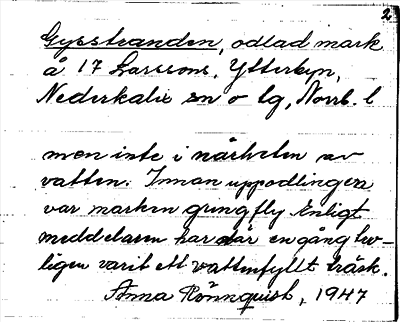 2
Gysstranden, odlad mark
å 17 Larssons, Ytterbyn,
Nederkalix sn o tg, Norrb. l
men inte i närheten av
vatten. Innan uppodlingen
var marken gungfly Enligt
meddelaren har där en gång tro-
ligen varit ett vattenfyllt träsk.
Anna Rönnquist, 1947